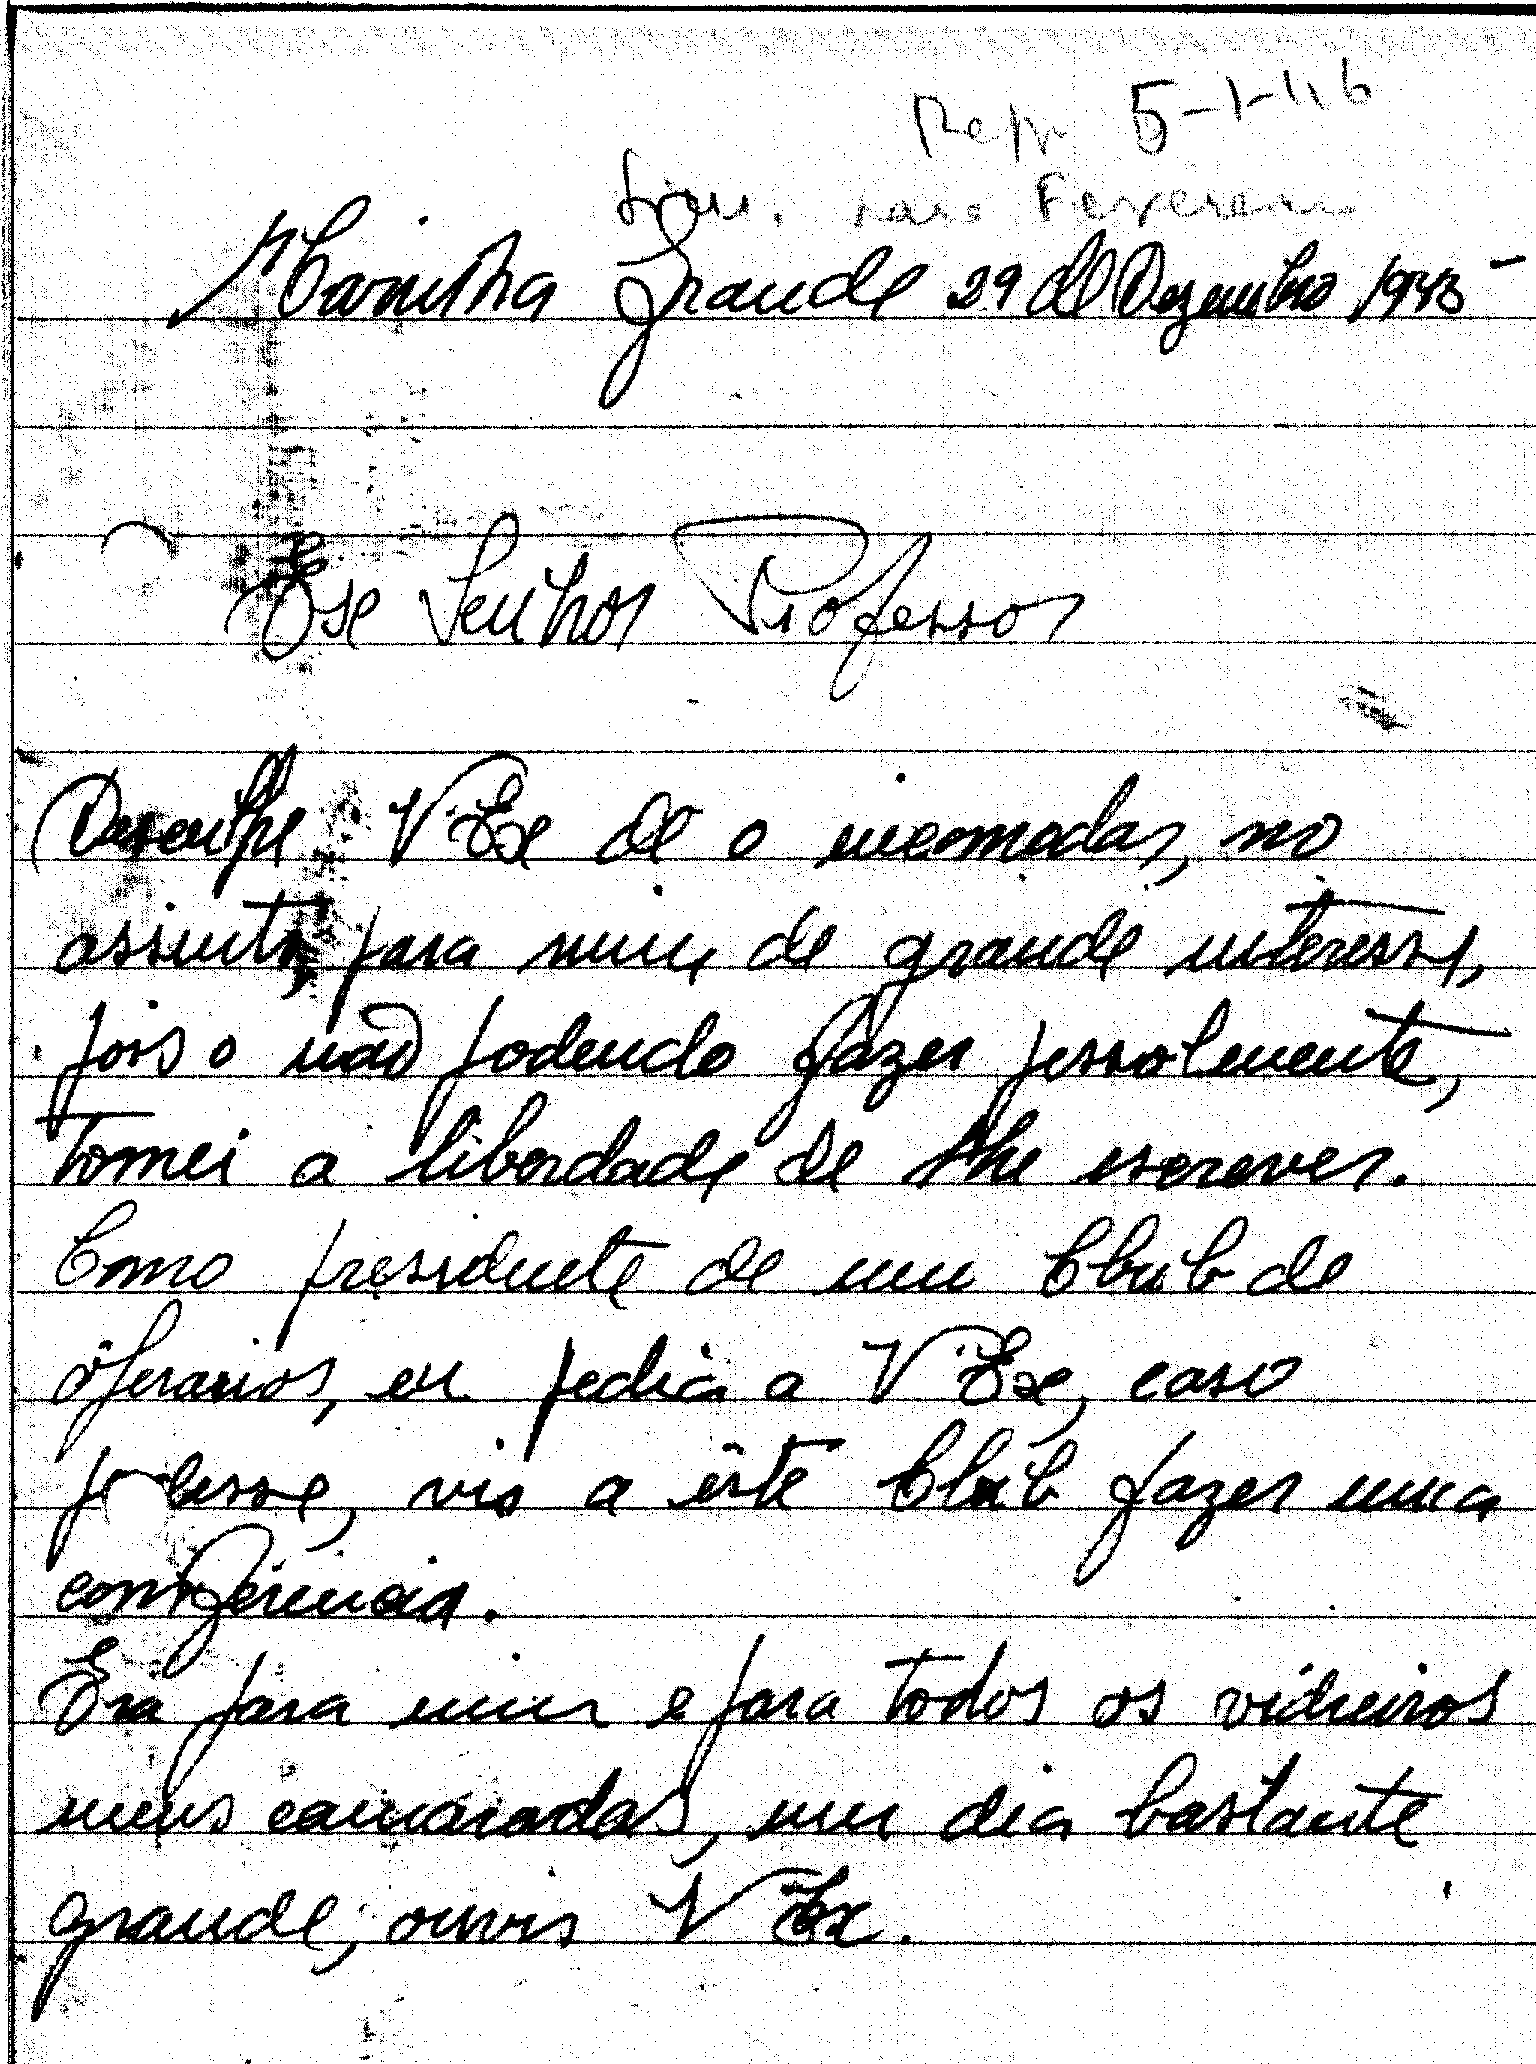 Resp. 5-1-46
Sim. para Fevereiro
Marinha Grande 29 de Dezembro 1945 -
Exe Senhor Professor
Desculpe V Exe de o incomodar, no
assunto, para mim de grande interesse,
pois o não podendo fazer pessolmente,
tomei a liberdade de lhe escrever.
Como presidente de um Club de
operarios, eu pedia a V Exe, caso
podesse, vir a êste Club fazer uma
conferencia.
Era para mim e para todos os vidreiros
meus camaradas, um dia bastante
grande, ouvir V Ex.